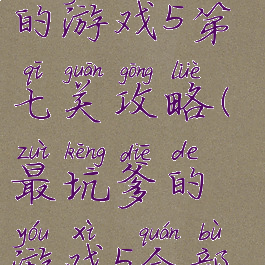 的游戏5第
qī guān gōng lüè
七关攻略(
zuì kēng diē de
最坑爹的
yóu xì quán bù
游戏5全部